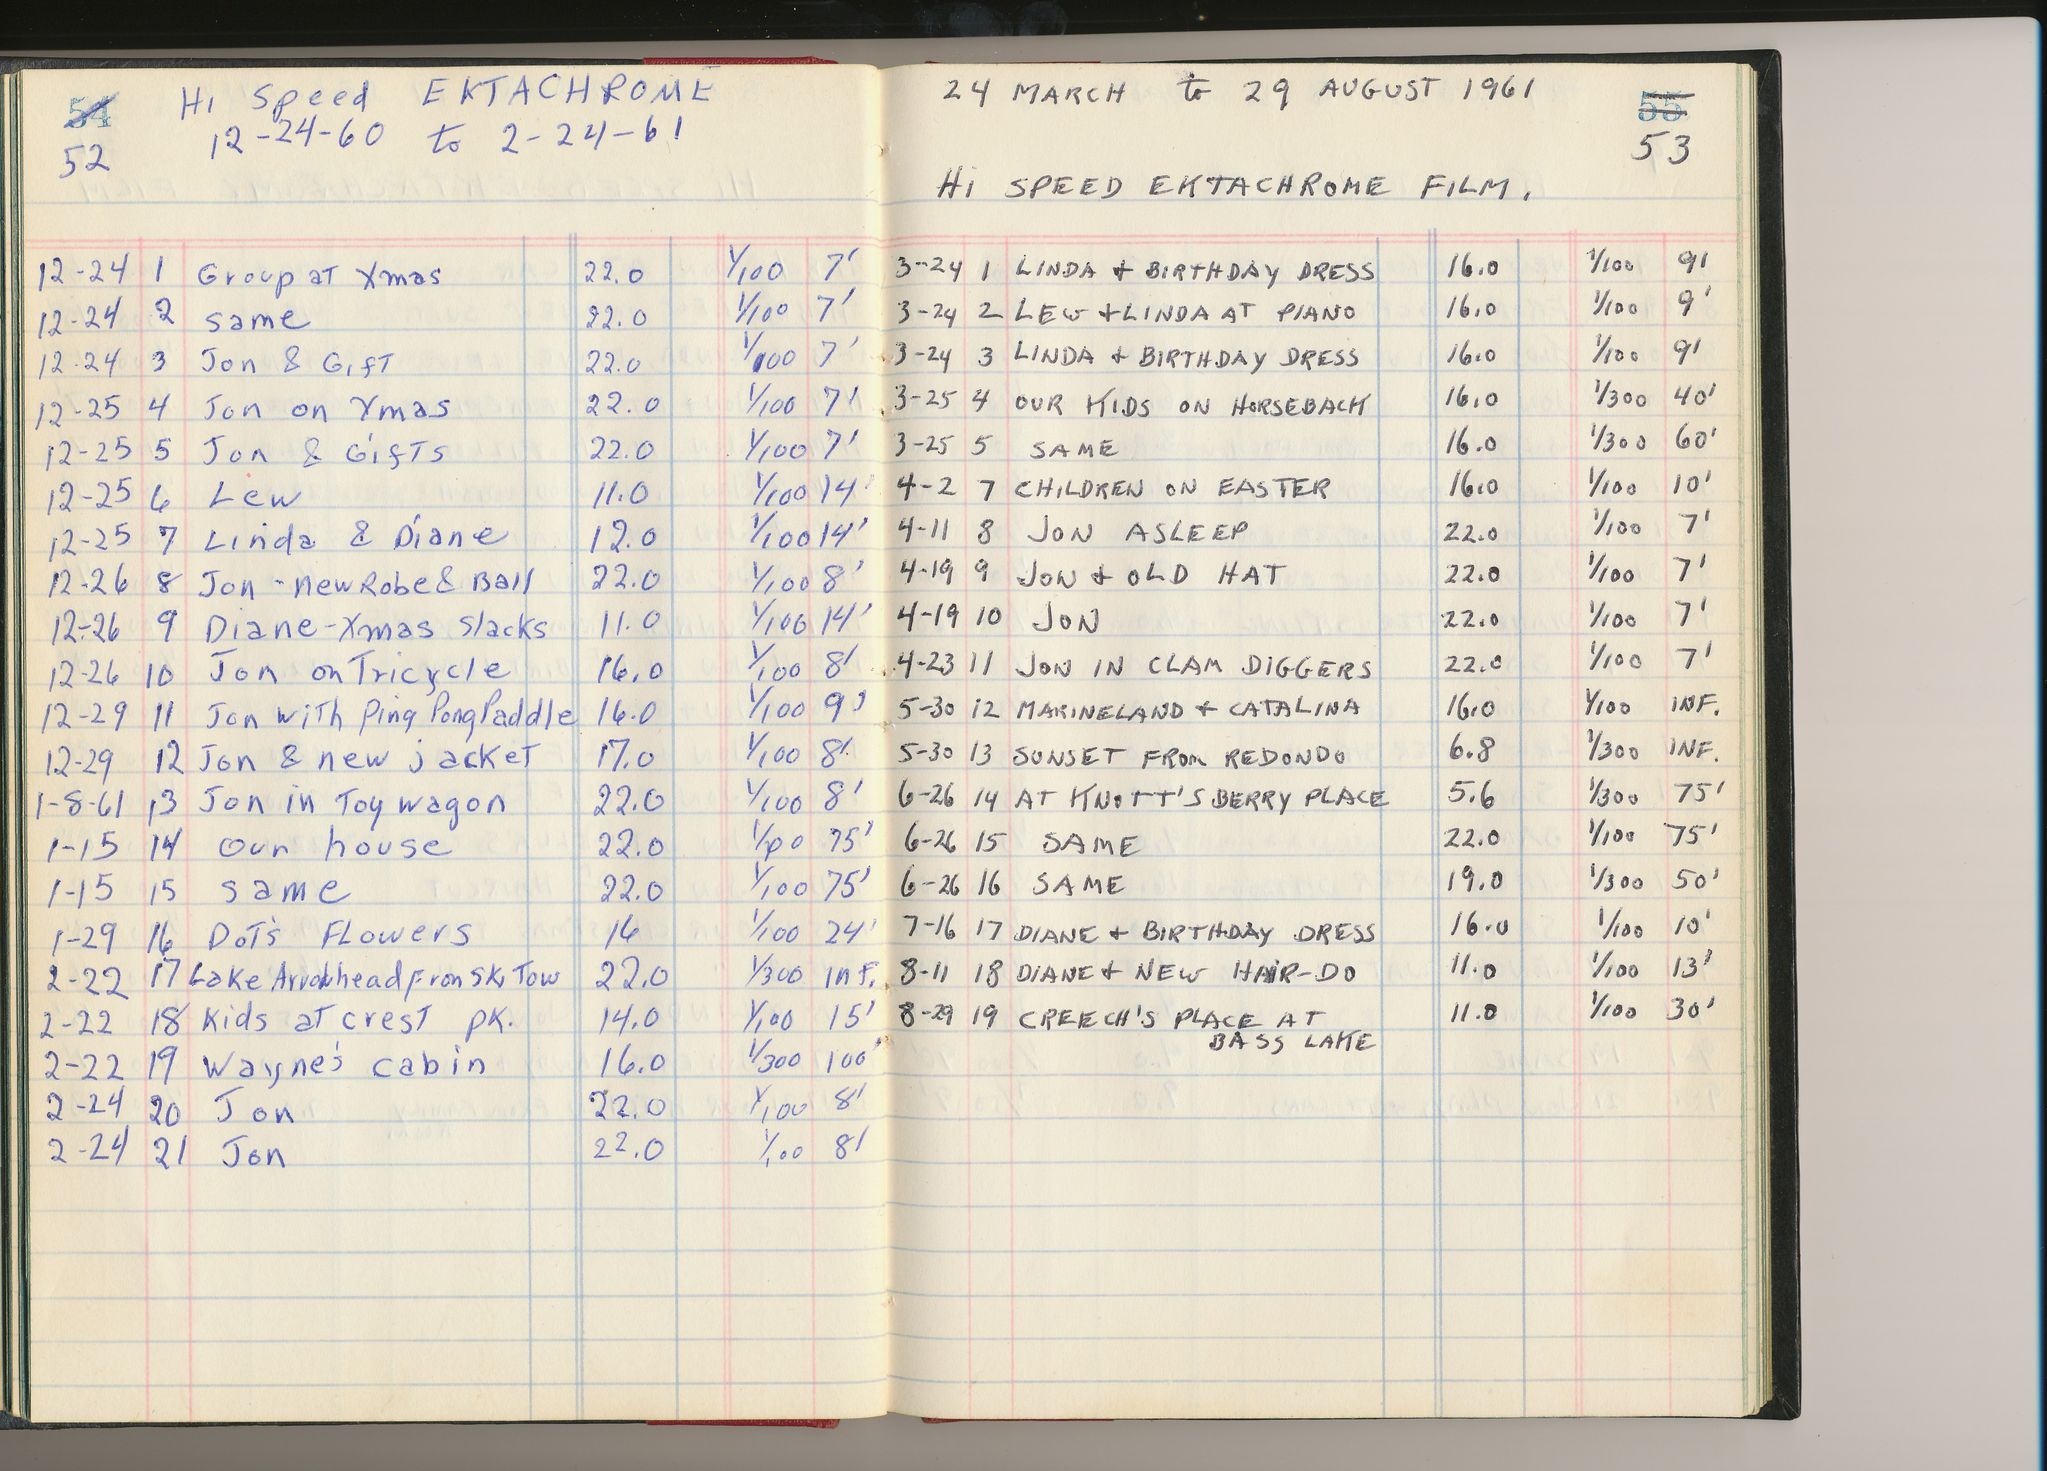 54
52
Hi Speed EKTACHROME
12-24-60 to 2-24-61
12-24 1 Group at Xmas 22.0 1/100 7'
12-24 2 same 22.0 1/100 7'
12-24 3 Jon & Gift 22.0 1/100 7'
12-25 4 Jon on Xmas 22.0 1/100 7'
12-25 5 Jon & Gifts 22.0 1/100 7'
12-25 6 Lew 11.0 1/100 14'
12-25 7 Linda & Diane 12.0 1/100 14'
12-26 8 Jon - new Robe & Ball 22.0 1/100 8'
12-26 9 Diane-Xmas slacks 11.0 1/100 14'
12-26 10 Jon on Tricycle 16.0 1/100 8'
12-29 11 Jon with Ping Pong Paddle 16.0 1/100 9'
12-29 12 Jon & new jacket 17.0 1/100 8'
1-8-61 13 Jon in Toy wagon 22.0 1/100 8'
1-15 14 Our house 22.0 1/100 75'
1-15 15 same 22.0 1/100 75'
1-29 16 Dot's Flowers 16 1/100 24'
2-22 17 Lake Arrowhead from Ski Tow 22.0 1/300 Inf.
2-22 18 Kids at Crest pk. 14.0 1/100 15'
2-22 19 Wayne's cabin 16.0 1/300 100'
2-24 20 Jon 22.0 1/100 8'
2-24 21 Jon 22.0 1/100 8'
24 MARCH to 29 AUGUST 1961
55
53
Hi SPEED EKTACHROME FILM.
3-24 1 LINDA + BIRTHDAY DRESS 16.0 1/100 9'
3-24 2 LEW + LINDA AT PIANO 16.0 1/100 9'
3-24 3 LINDA + BIRTHDAY DRESS 16.0 1/100 9'
3-25 4 OUR KIDS ON HORSEBACK 16.0 1/300 40'
3-25 5 SAME 16.0 1/300 60'
4-2 7 CHILDREN ON EASTER 16.0 1/100 10'
4-11 8 JON ASLEEP 22.0 1/100 7'
4-19 9 JON + OLD HAT 22.0 1/100 7'
4-19 10 JON 22.0 1/100 7'
4-23 11 JON IN CLAM DIGGERS 22.0 1/100 7'
5-30 12 MARINELAND + CATALINA 16.0 1/100 INF.
5-30 13 SUNSET FROM REDONDO 6.8 1/300 INF.
6-26 14 AT KNOTT'S BERRY PLACE 5.6 1/300 75'
6-26 15 SAME 22.0 1/100 75'
6-26 16 SAME 19.0 1/300 50'
7-16 17 DIANE + BIRTHDAY DRESS 16.0 1/100 10'
8-11 18 DIANE + NEW HAIR-DO 11.0 1/100 13'
8-29 19 CREECH'S PLACE AT 11.0 1/100 30'
BASS LAKE